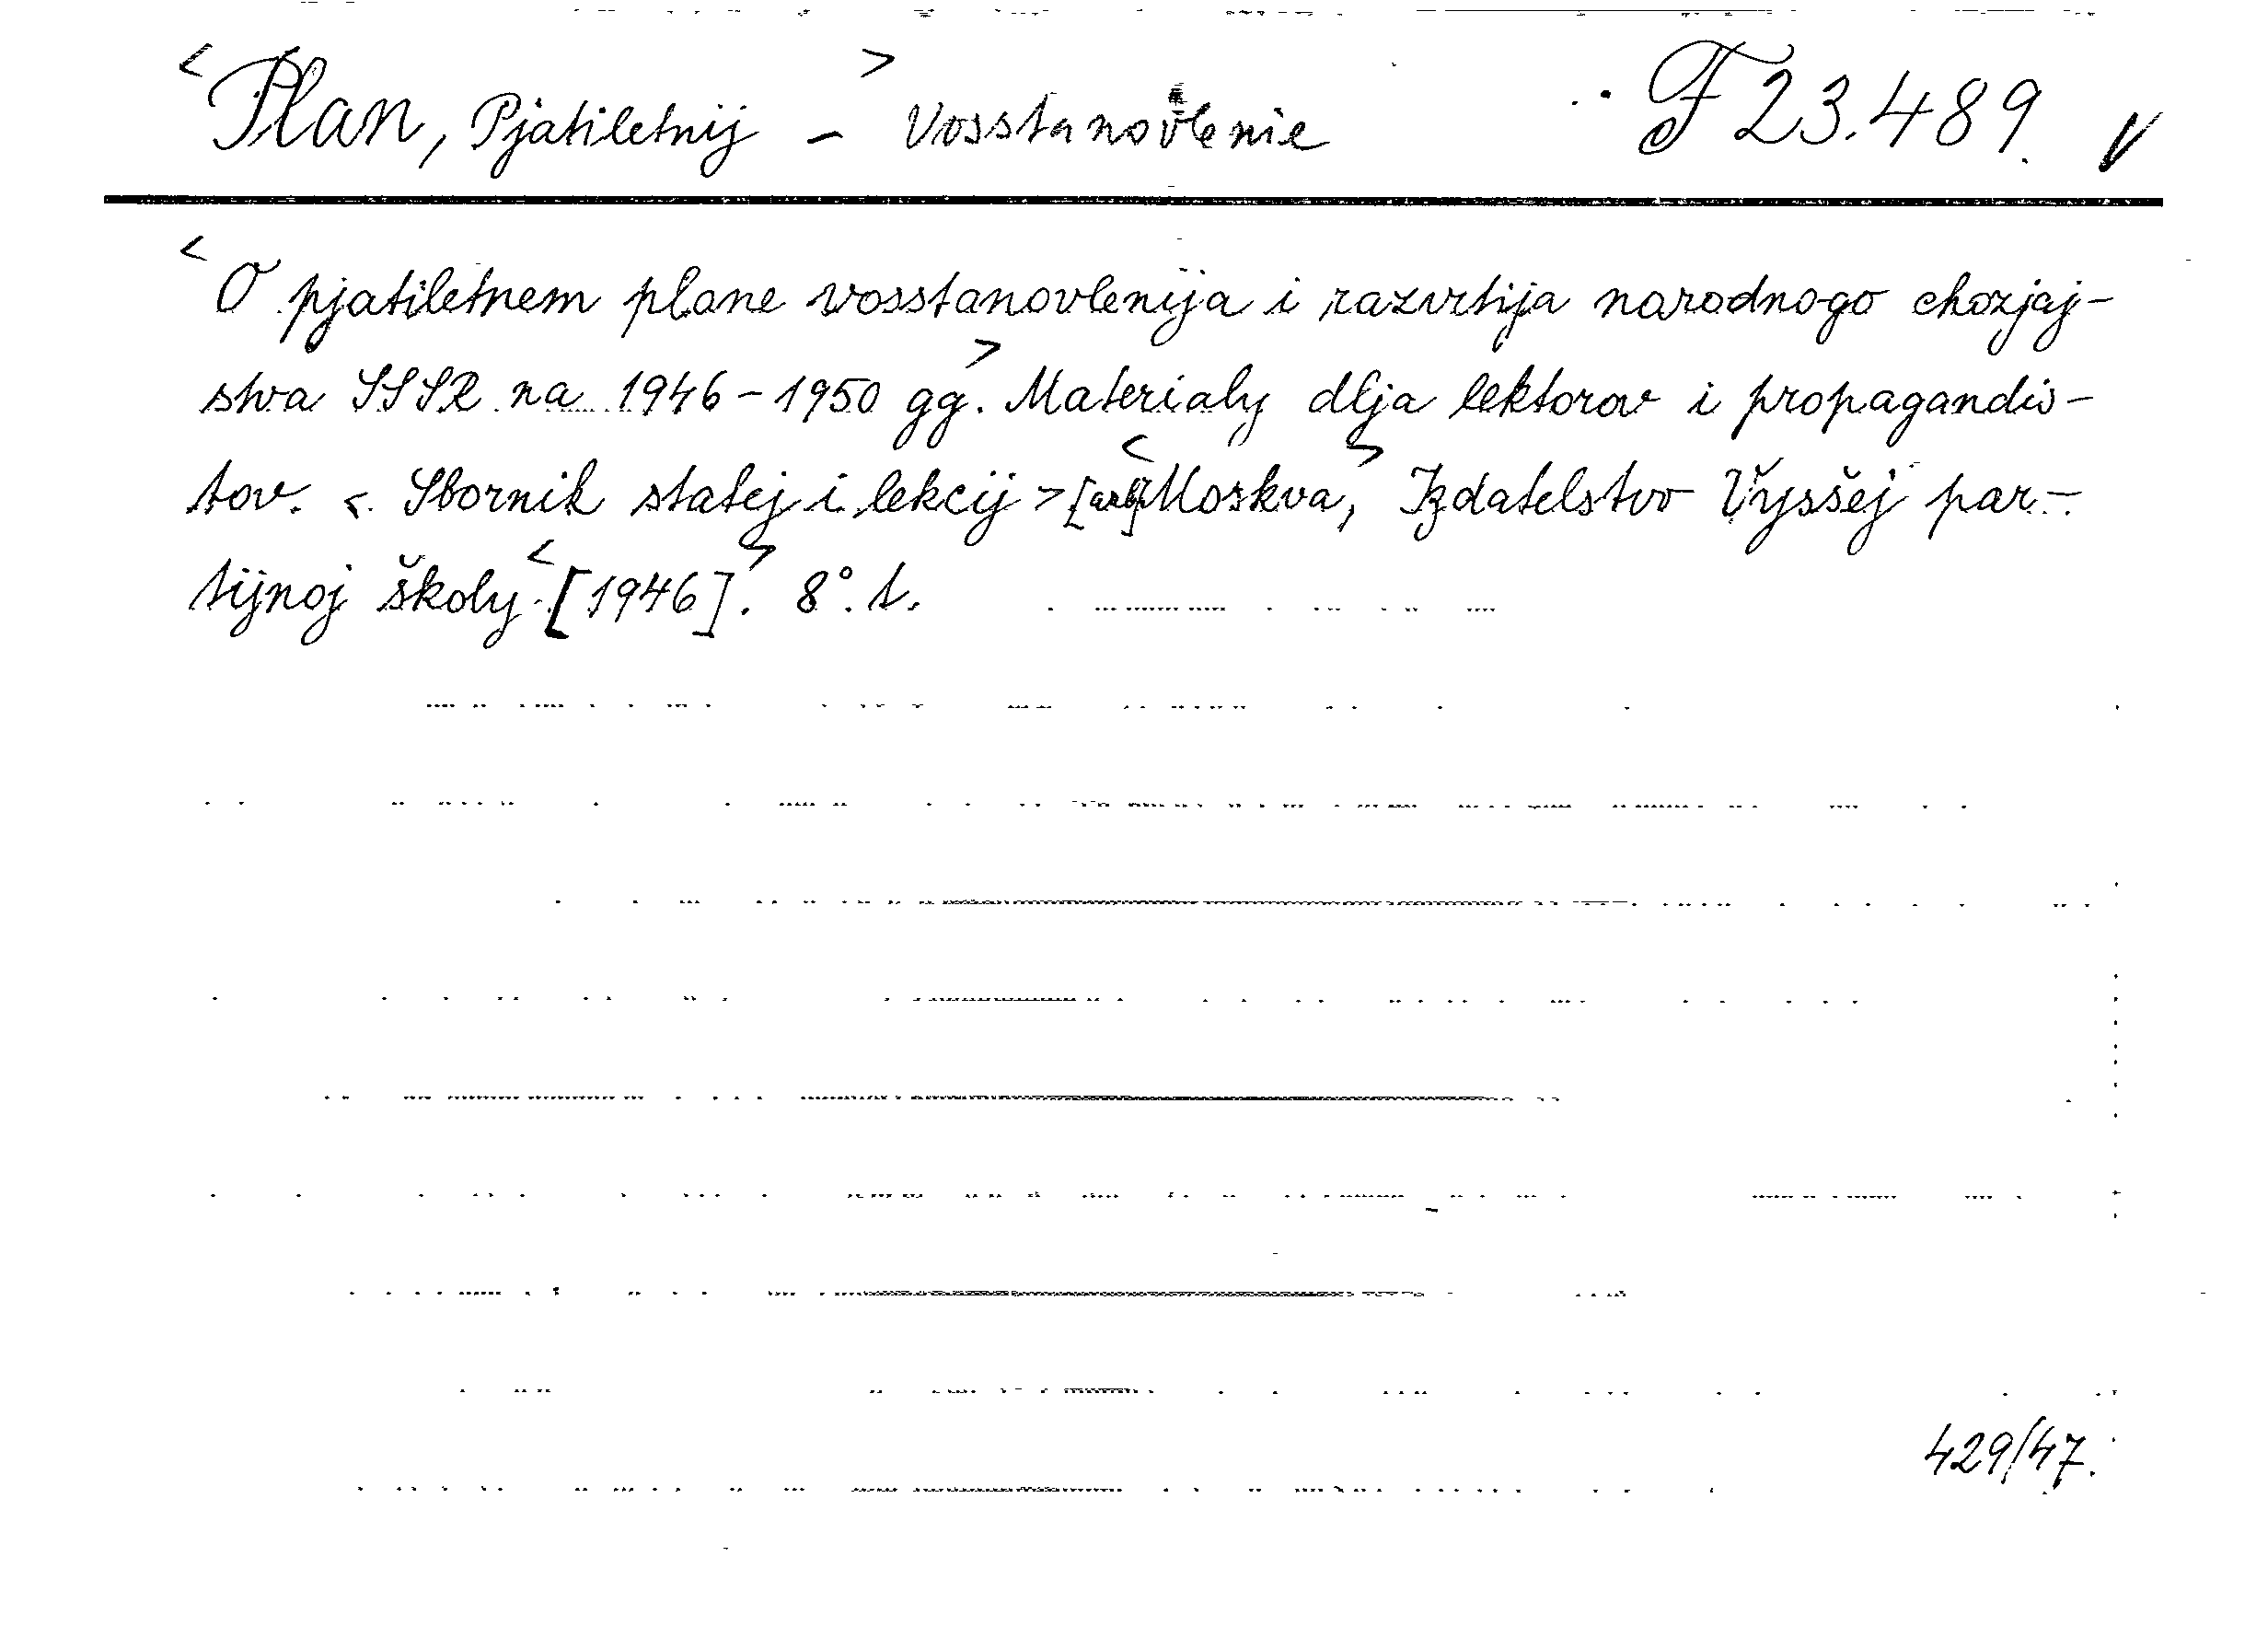 <Plan, Pjatiletnij> - Vosstanovlenie F 23.489. V
<O pjatiletnem plane vosstanovlenija i razvitija narodnogo chozjaj-
stva SSSR na 1946-1950 gg.> Materialy dlja lektorov i propagandis-
tov. <. Sbornik statej i lekcij> <Moskva,> Izdatelstvo Vysšej par-
tijnoj školy <[1946]>. 8°. t.
429/47.